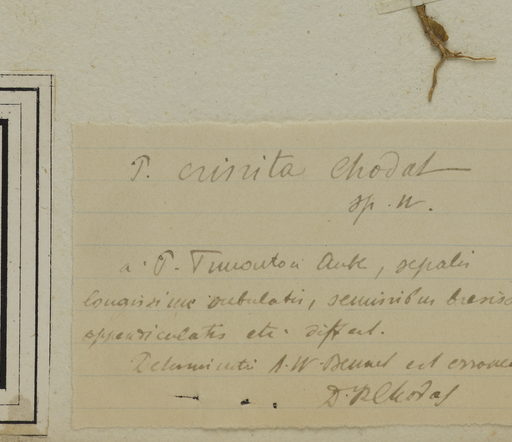 P. crinita Chodat
sp. n.
a P. Timoutou Aubl, sepalis
longissime subulatis, seminibus
appendiculatis etc. differt.
A. W. Bennet est
D. R Chodat